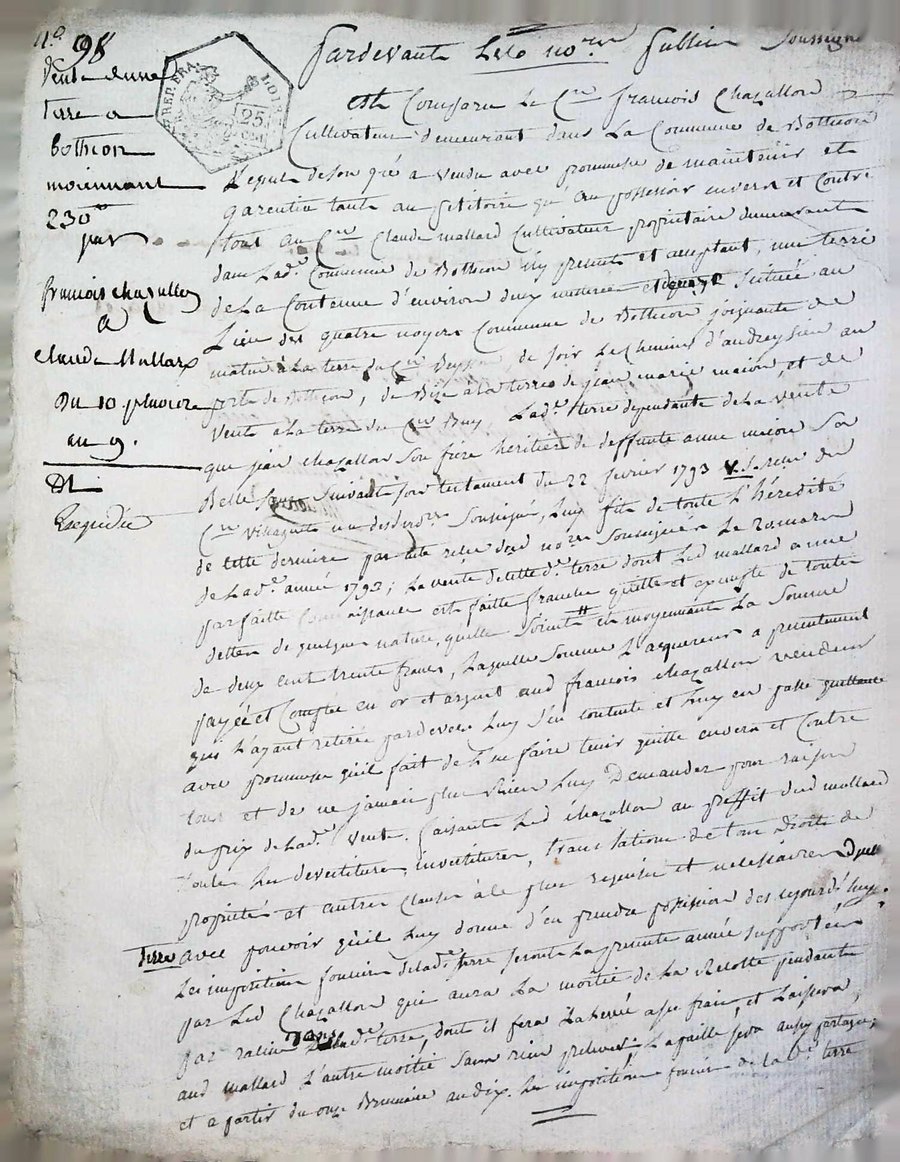 n.o 98
Vente d'une
terre a
bothéon
moiennant
230
par
francois chazallon
a
claude Mallard
Du 10 pluviose
an 9.
Expediée
REP. FRA.
25
Pardevant Les no.res Publics Soussignés
est Comparu Le C.en françois Chazallon
Cultivateur demeurant dans La Commune de Bothéon
Lequel de son gré a vendu avec promesse de maintenir et
garentir tant au petitoire qu'au possessoir envers et Contre
tous au C.en Claude mallard Cultivateur propriétaire demeurant
dans Lad.e Commune de Bothéon icy present et acceptant, une terre
de La Contenue d'environ deux Située au
Lieu des quatre noyers Commune de Bothéon joignante de
matin à La terre du C.en de soir Le Chemin d'andrezieu au
porte de Bothéon, de Bize à La terre de jean marie et de
Vent a La terre du C.en Lad.e terre dependante de La vente
que jean chazallon Son frère heritier de deffunte anne Sa
Belle Suivant son testament du 22 fevrier 1793
C.en un desd. no.res Soussignés, Luy fit de toute L'héredité
de Cette derniere par acte reçu dud no.re Soussigné Le
de Lad.e année 1793; La vente de Cette d.e terre dont Led mallard a une
parfaite Connaissance est faite franche quitte et exempte de toutes
dettes de quelque nature, quelle Soient et moyennant La Somme
de deux cent trente francs, Laquelle Somme L'aquereur a presentement
payée et Comptée en or et argent aud françois chazallon vendeur
qui L'ayant retirée pardevers Luy S'en contente et Luy en passe quittance
avec promesse qu'il fait de L'en faire tenir quitte envers et Contre
tous et de ne jamais plus Rien Luy Demander pour raison
du prix de Lad.e vente. faisant Led chazallon au proffit dud mallard
toutes Les devestitures, investitures, translations de tous Droits de
proprieté et autres clauses à Le plus requises et necessaires
terre avec pouvoir qu'il Luy donne d'en prendre possession des
Les impositions foncieres de Lad.e terre Seront La presente année supportées
par Led Chazallon qui aura La moitié de La Recolte pendante
par racine dans Lad.e terre, dont il fera La Levée a ses frais, et Laissera
aud mallard L'autre moitié Sans rien prelever; La paille sera aussy partagée;
et a partir du onze Brumaire an dix. Les impositions foncieres de La d.e terre